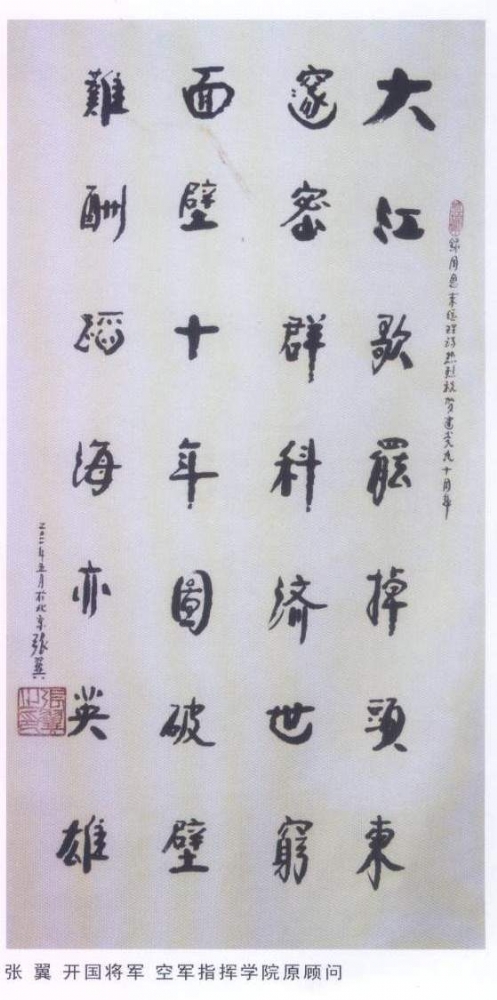 录周恩来总理诗热烈祝贺建党九十周年
大江歌罷掉頭東
邃密群科济世窮
面壁十年圖破壁
難酬蹈海亦英雄
二〇一一年五月於北京張翼
张 翼 开国将军 空军指挥学院原顾问